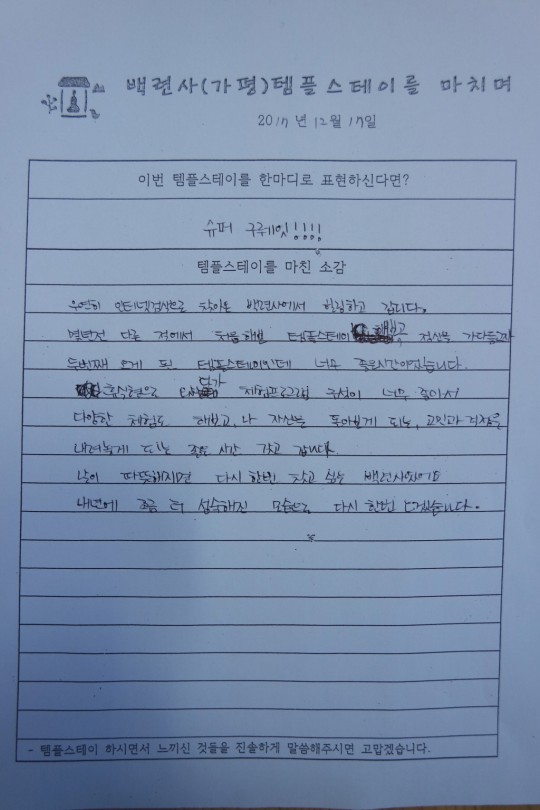 백련사(가평)템플스테이를 마치며
2017년 12월 17일
이번 템플스테이를 한마디로 표현하신다면?
슈퍼 구뤠잇!!!!
템플스테이를 마친 소감
우연히 인터넷검색으로 찾아온 백련사에서 힐링하고 갑니다.
몇년전 다른 절에서 처음해본 템플스테이 해보고 정신을 가다듬고
두번째 오게 된 템플스테이인데 너무 좋은시간이었습니다.
휴식형으로 체험프로그램 구성이 너무 좋아서
다양한 체험도 해보고, 나 자신을 돌아보게 되는, 고민과 걱정을
내려놓게 되는 좋은 시간 갖고 갑니다.
날이 따뜻해지면 다시 한번 찾고 싶은 백련사였어요
내년에 조금 더 성숙해진 모습으로 다시 한번 오겠습니다.
- 템플스테이 하시면서 느끼신 것들을 진솔하게 말씀해주시면 고맙겠습니다.